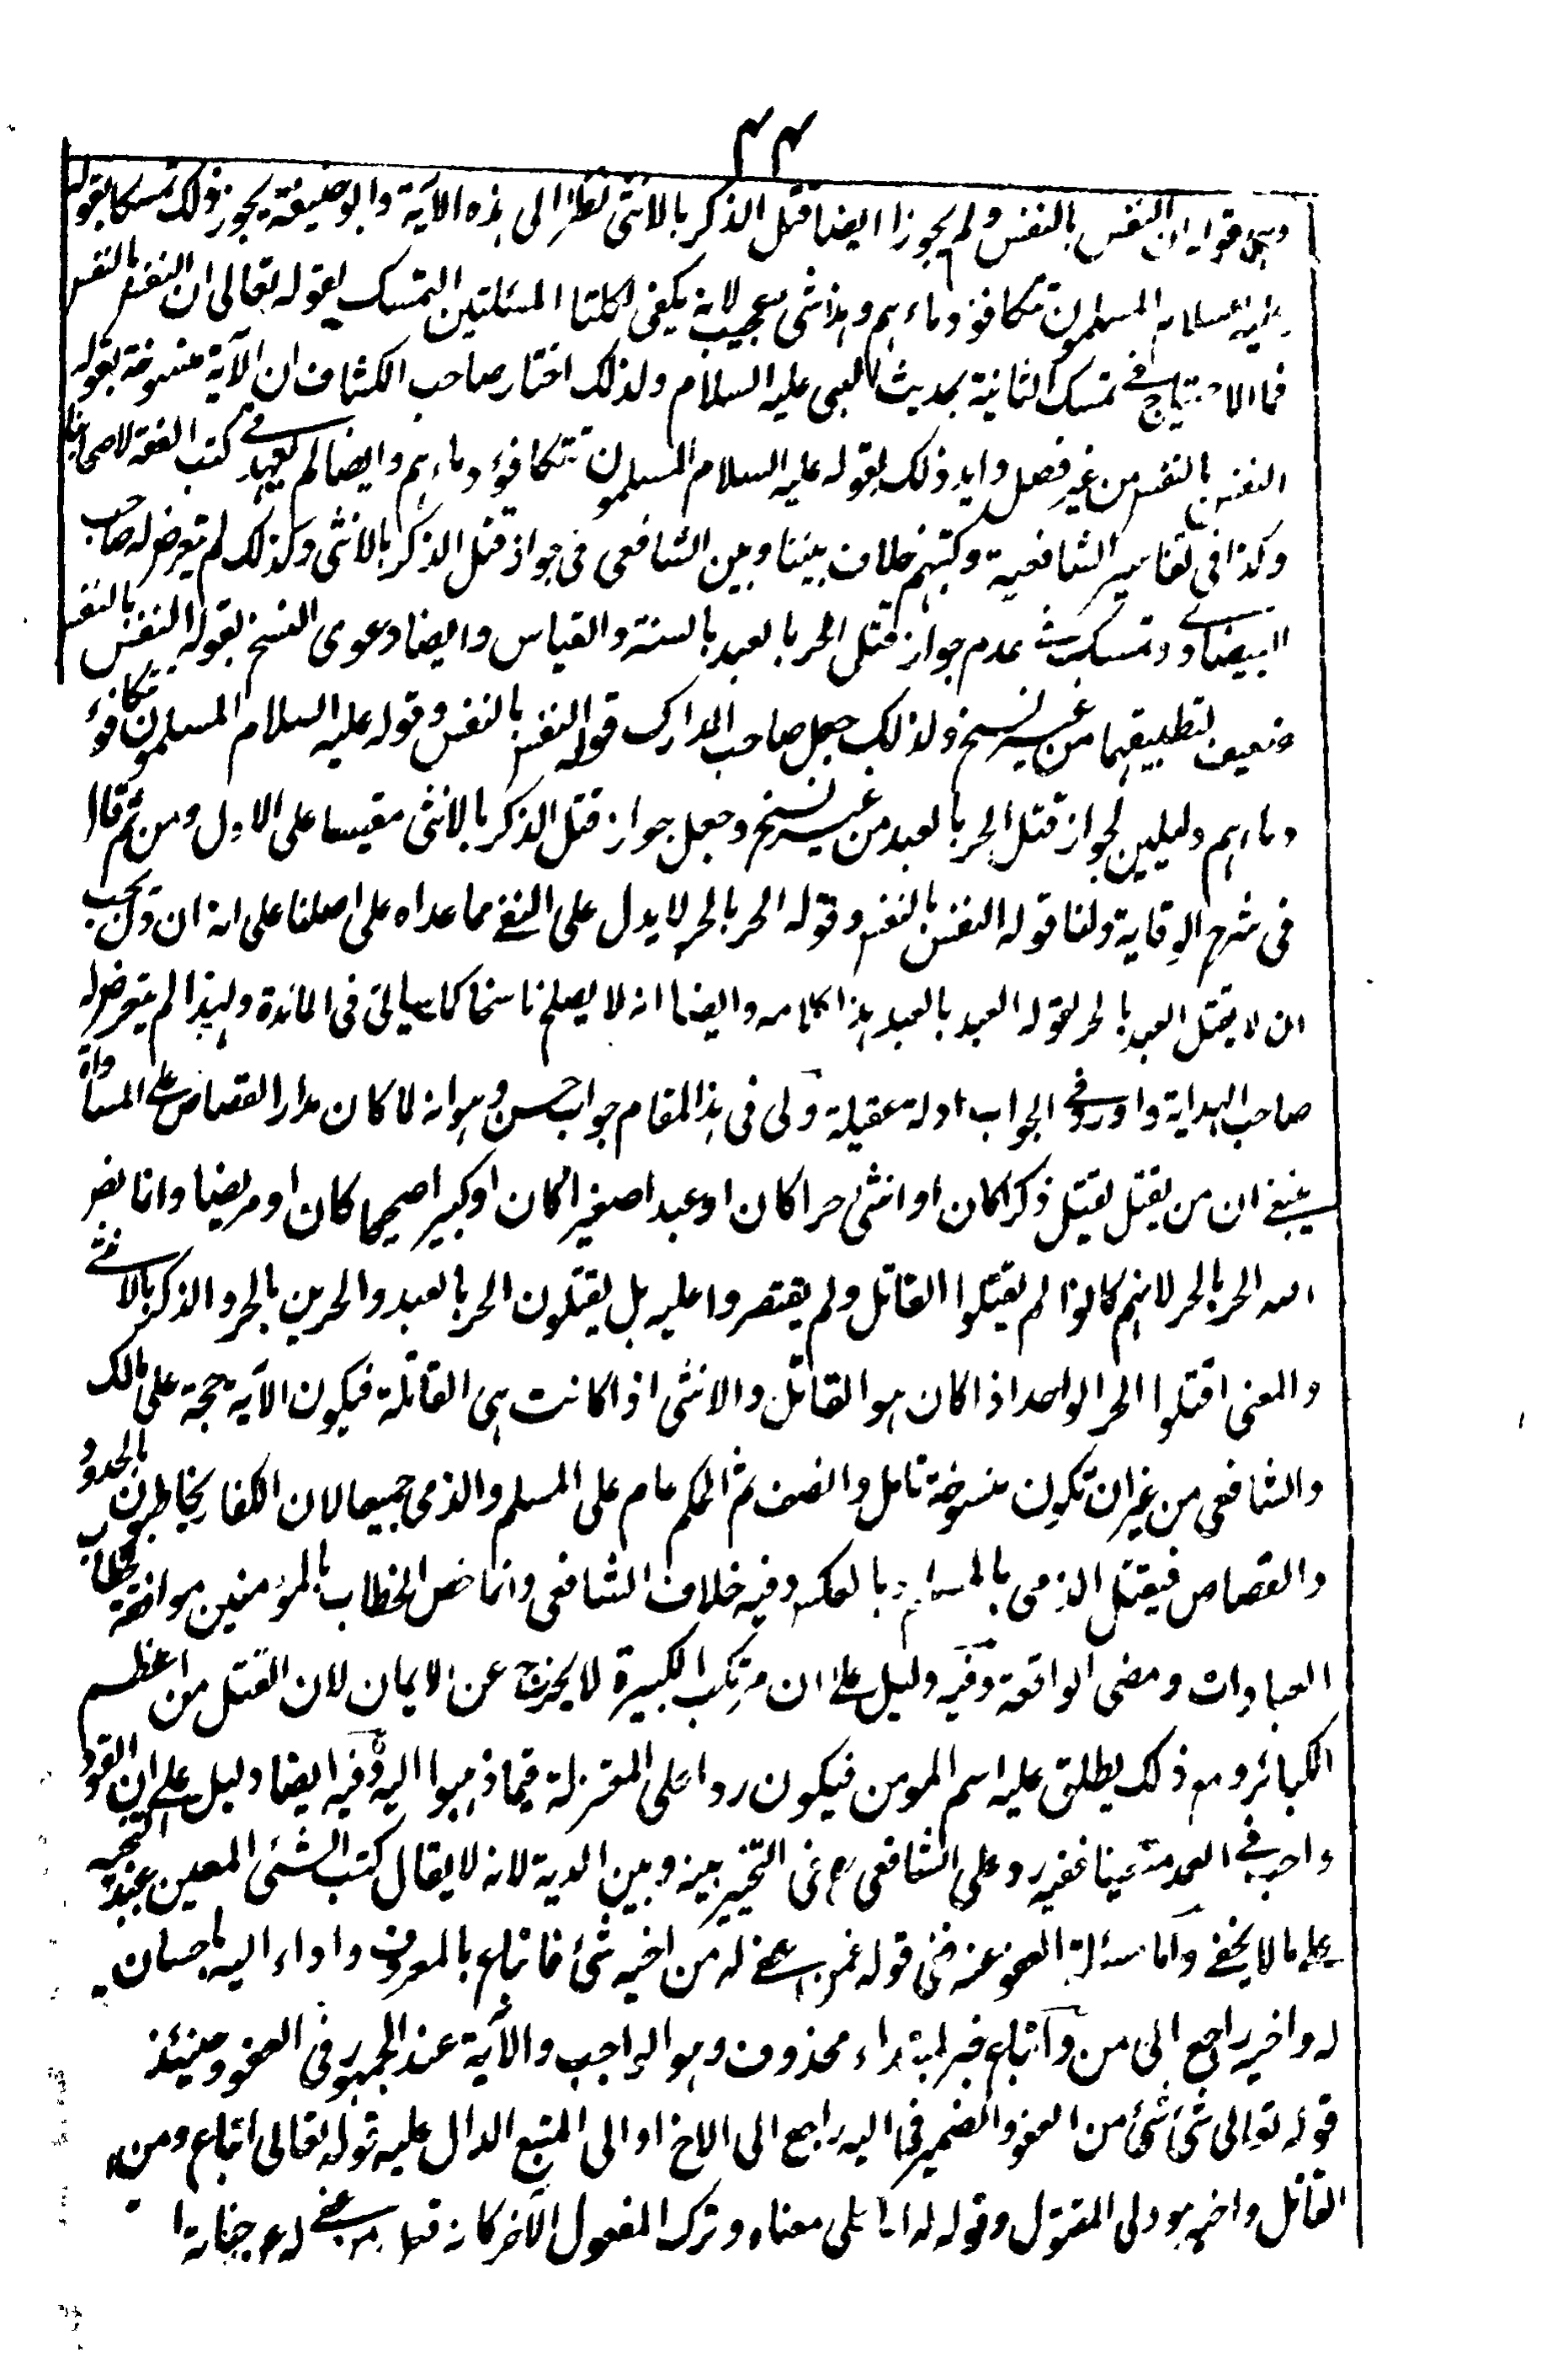 ٤٤
وهى قوله ان النفس بالنفس ولم يجوزا ايضا قتل الذكر بالانثى نظرا الى هذه الآية وابو حنيفة يجوز ذلك تمسكا بقوله
عليه السلام المسلمون تتكافؤ دماءهم وهذا شئ عجيب لانه يكفى لكلتا المسئلتين التمسك بقوله تعالى ان النفس بالنفس
فما الاحتياج فى تمسك الثانية بحديث النبى عليه السلام ولذلك اختار صاحب الكشاف ان الآية منسوخة بقوله
النفس بالنفس من غير فصل وايد ذلك بقوله عليه السلام المسلمون تتكافؤ دماءهم وايضا لم يعهد فى كتب الفقه لاصحابنا
وكذا فى تفاسير الشافعية وكتبهم خلاف بيننا وبين الشافعى فى جواز قتل الذكر بالانثى وكذلك لم يتعرض له صاحب
البيضاوى وتمسك فى عدم جواز قتل الحر بالعبد بالسنة والقياس وايضا دعوى النسخ بقوله النفس بالنفس
ضعيف لتطبيقهما من غير نسخ ولذلك جعل صاحب المدارك قوله النفس بالنفس وقوله عليه السلام المسلمون تتكافؤ
دماءهم دليلين لجواز قتل الحر بالعبد من غير نسخ وجعل جواز قتل الذكر بالانثى مقيسا على الاول ومن ثم قال
فى شرح الوقاية ولنا قوله النفس بالنفس وقوله الحر بالحر لا يدل على النفى مما عداه على اصلنا على انه ان دل يجب
ان لا يقتل العبد بالحر لقوله العبد بالعبد هذا كلامه وايضا انه لا يصلح ناسخا كما سياتى فى المائدة ولهذا لم يتعرض له
صاحب الهداية واورد فى الجواب ادلة عقيلة ولى فى هذا المقام جواب حسن وهو انه لما كان مدار القصاص على المساواة
ينبغى ان من يقتل يقتل ذكرا كان او انثى حرا كان او عبدا صغيرا كان او كبيرا صحيحا كان او مريضا وانما نص
الله الحر بالحر لانهم كانوا لم يقتلوا القاتل ولم يقتصروا عليه بل يقتلون الحر بالعبد والحرين بالحر والذكر بالانثى
والمعنى اقتلوا الحر الواحد اذا كان هو القاتل والانثى اذا كانت هى القاتلة فيكون الآية حجة على مالك
والشافعى من غير ان تكون منسوخة تامل وانصف ثم الحكم عام على المسلم والذمى جميعا لان الكفار يخاطبون بالحدود
والقصاص فيقتل الذمى بالمسلم وبالعكس وفيه خلاف الشافعى وانما خص الخطاب بالمؤمنين موافقة لخطاب
العبادات ومضى الواقعة وفيه دليل على ان مرتكب الكبيرة لا يخرج عن الايمان لان القتل من اعظم
الكبائر ومع ذلك يطلق عليه اسم المومن فيكون ردا على المعتزلة فيما ذهبوا اليه وفيه ايضا دليل على ان القود
واجب فى العمد متعينا ففيه رد على الشافعى رح فى التخيير بينه وبين الدية لانه لا يقال كتب الشئ المعين عند التخيير
على ما لا يخفى واما مسئلة العفو عنه ففى قوله فمن عفى له من اخيه شئ فاتباع بالمعروف واداء اليه باحسان
له واخيه راجع الى من واتباع خبر لمبتداء محذوف وهو الواجب والآية عند الجمهور فى العفو وحينئذ
قوله تعالى شئ شئ من العفو والضمير فى اليه راجع الى الاخ او الى المتبع الدال عليه قوله تعالى اتباع ومن
القاتل واخيه هو ولى المقتول وقوله له اما على معناه وترك المفعول الآخر كانه قيل من عفى له عن جنايته ا